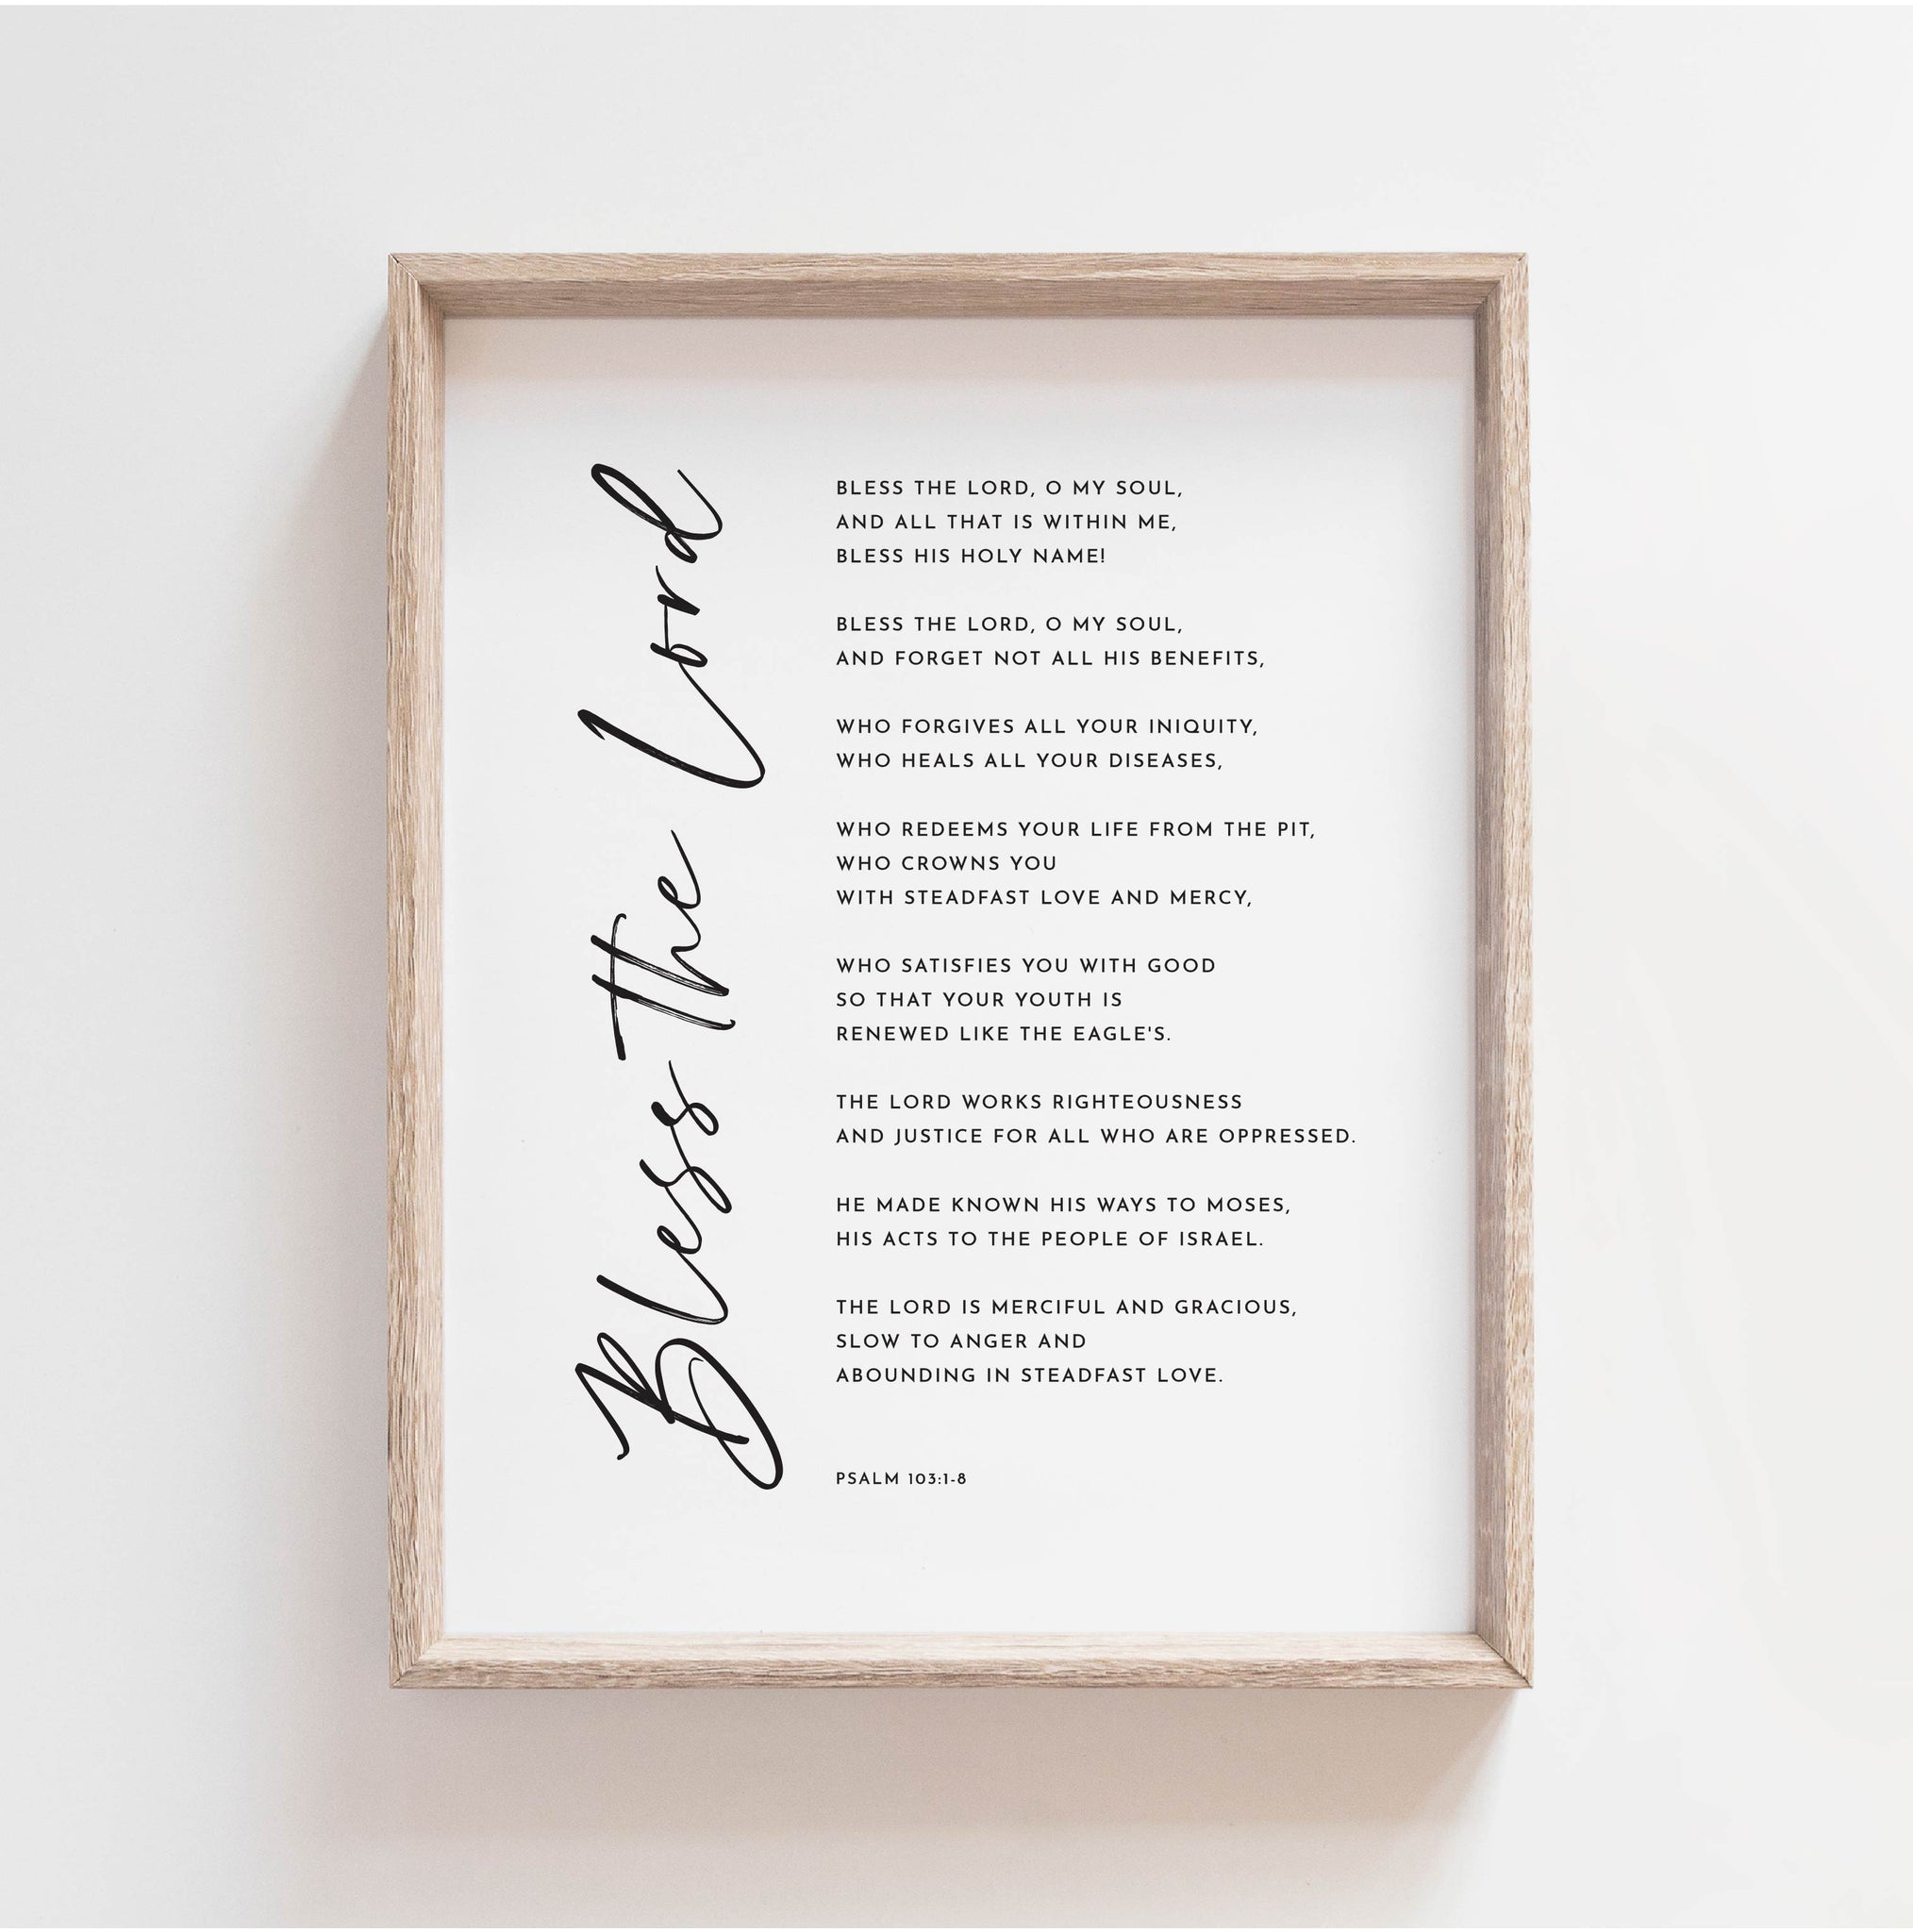 Bless the Lord
BLESS THE LORD, O MY SOUL,
AND ALL THAT IS WITHIN ME,
BLESS HIS HOLY NAME!
BLESS THE LORD, O MY SOUL,
AND FORGET NOT ALL HIS BENEFITS,
WHO FORGIVES ALL YOUR INIQUITY,
WHO HEALS ALL YOUR DISEASES,
WHO REDEEMS YOUR LIFE FROM THE PIT,
WHO CROWNS YOU
WITH STEADFAST LOVE AND MERCY,
WHO SATISFIES YOU WITH GOOD
SO THAT YOUR YOUTH IS
RENEWED LIKE THE EAGLE'S.
THE LORD WORKS RIGHTEOUSNESS
AND JUSTICE FOR ALL WHO ARE OPPRESSED.
HE MADE KNOWN HIS WAYS TO MOSES,
HIS ACTS TO THE PEOPLE OF ISRAEL.
THE LORD IS MERCIFUL AND GRACIOUS,
SLOW TO ANGER AND
ABOUNDING IN STEADFAST LOVE.
PSALM 103:1-8